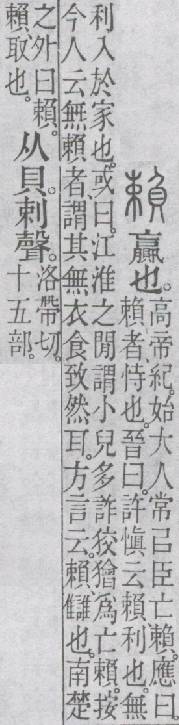 賴 贏也。
高帝紀。始大人常㠯臣亡賴。應曰。
賴者、恃也。晉曰。許愼云賴、利也。無
利入於家也。或曰。江淮之閒謂小兒多詐狡獪爲亡賴。按
今人云無賴者、謂其無衣食致然耳。方言云。賴、讎也。南楚
之外曰賴。
賴、取也。
从貝。剌聲。
洛帶切。
十五部。